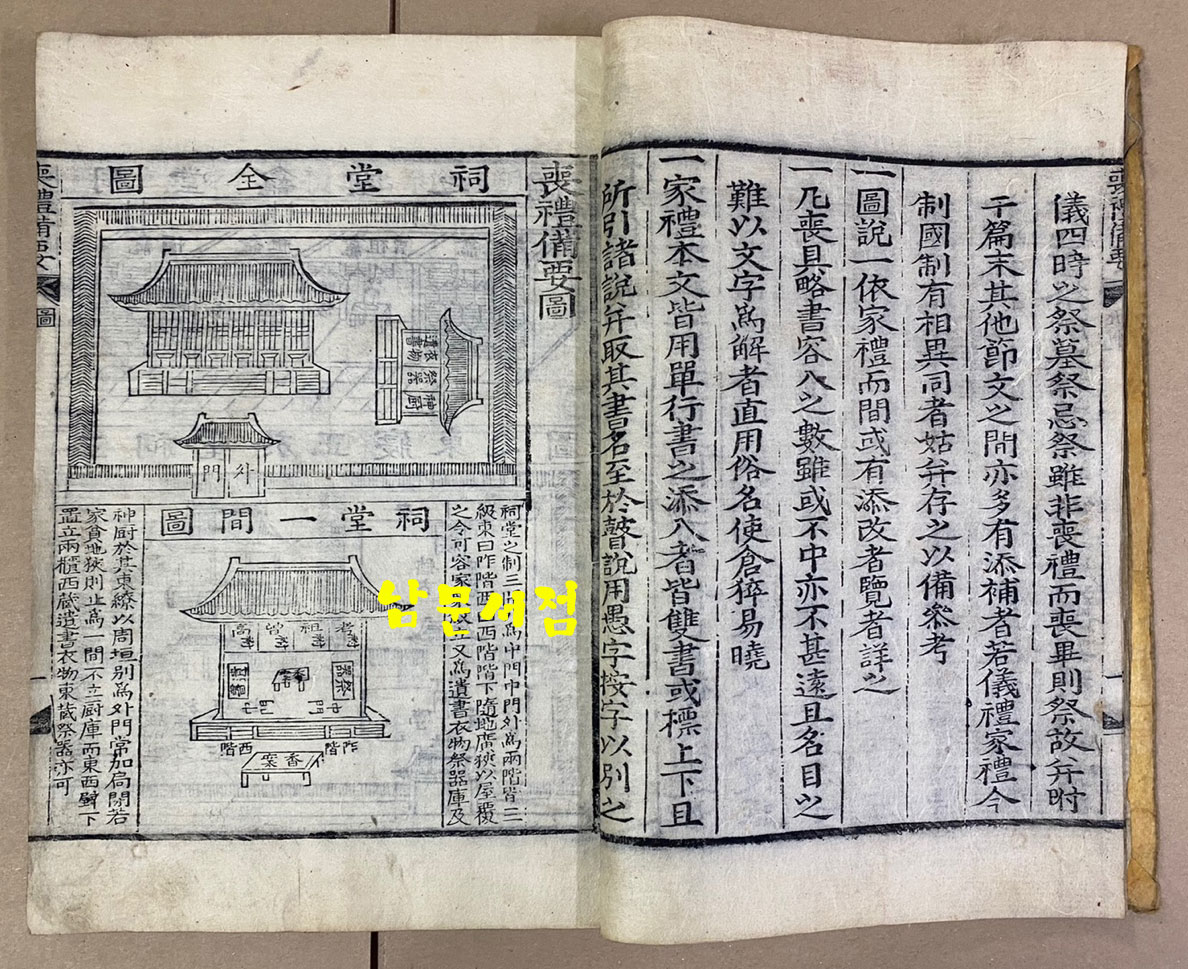 喪禮備要
儀四時之祭墓祭忌祭雖非喪禮而喪畢則祭故幷附
于篇末其他節文之間亦多有添補者若儀禮家禮今
制國制有相異同者姑幷存之以備參考
一圖說一依家禮而間或有添改者覽者詳之
一凡喪具略書容入之數雖或不中亦不甚遠且名目之
難以文字爲解者直用俗名使倉猝易曉
一家禮本文皆用單行書之添入者皆雙書或標上下且
所引諸說幷取其書名至於瞽說用愚字按字以別之
喪禮備要圖
祠堂全圖
遺書衣物
祭器
神厨
外門
祠堂之制三間 爲中門中門外爲兩階皆三
級東曰阼階西 西階階下隨地廣狹以屋覆
之令可容家 叙立又爲遺書衣物祭器庫及
祠堂一間圖
考
祖
曾
高
祭器
中門
阼階
西階
香案
神厨於其東繚以周垣別爲外門常加扃閉若
家貧地狹則止爲一間不立厨庫而東西壁下
置立兩櫃西藏遺書衣物東藏祭器亦可
喪禮備要
圖
남문서점